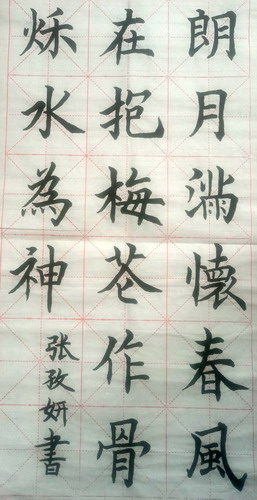 朗月滿懷春風
在抱梅芲作骨
秌水為神
张孜妍書